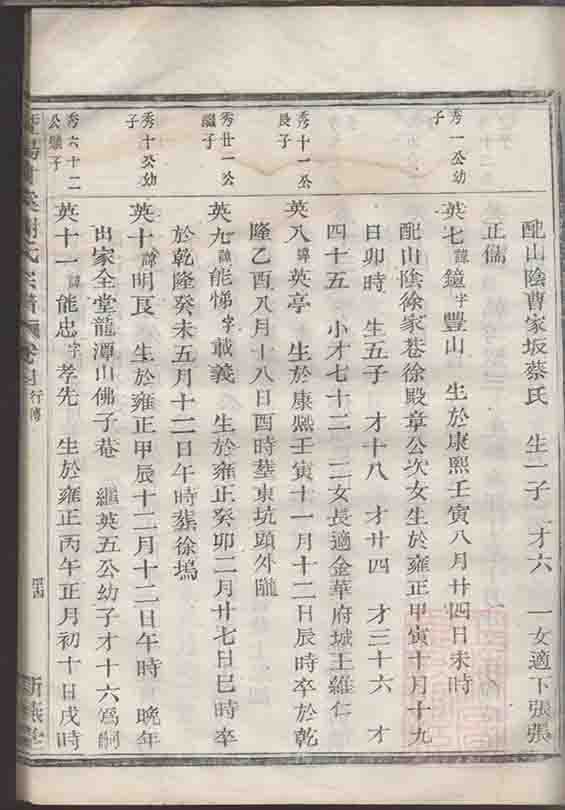 配山陰曹家坂蔡氏 生一子 才六 一女適下張張
正儒
秀一公幼
子
英七諱鐘字豐山 生於康熙壬寅八月廿四日未時
配山陰徐家巷徐殿章公次女生於雍正甲寅十月十九
日卯時 生五子 才十八 才廿四 才三十六 才
四十五 小才七十二 二女長適金華府城王維仁
秀十一公
長子
英八諱英亭 生於康熙壬寅十一月十二日辰時卒於乾
隆乙酉八月十八日酉時葬東坑頭外隴
秀廿一公
繼子
英九諱能悌字載義 生於雍正癸卯二月廿七日巳時卒
於乾隆癸未五月十二日午時葬徐塢
秀十公幼
子
英十諱明良 生於雍正甲辰十二月十二日午時 晚年
出家全堂龍潭山佛子菴 繼英五公幼子才十六為嗣
秀六十二
公繼子
英十一諱能忠字孝先 生於雍正丙午正月初十日戌時
氏宗譜 行傳